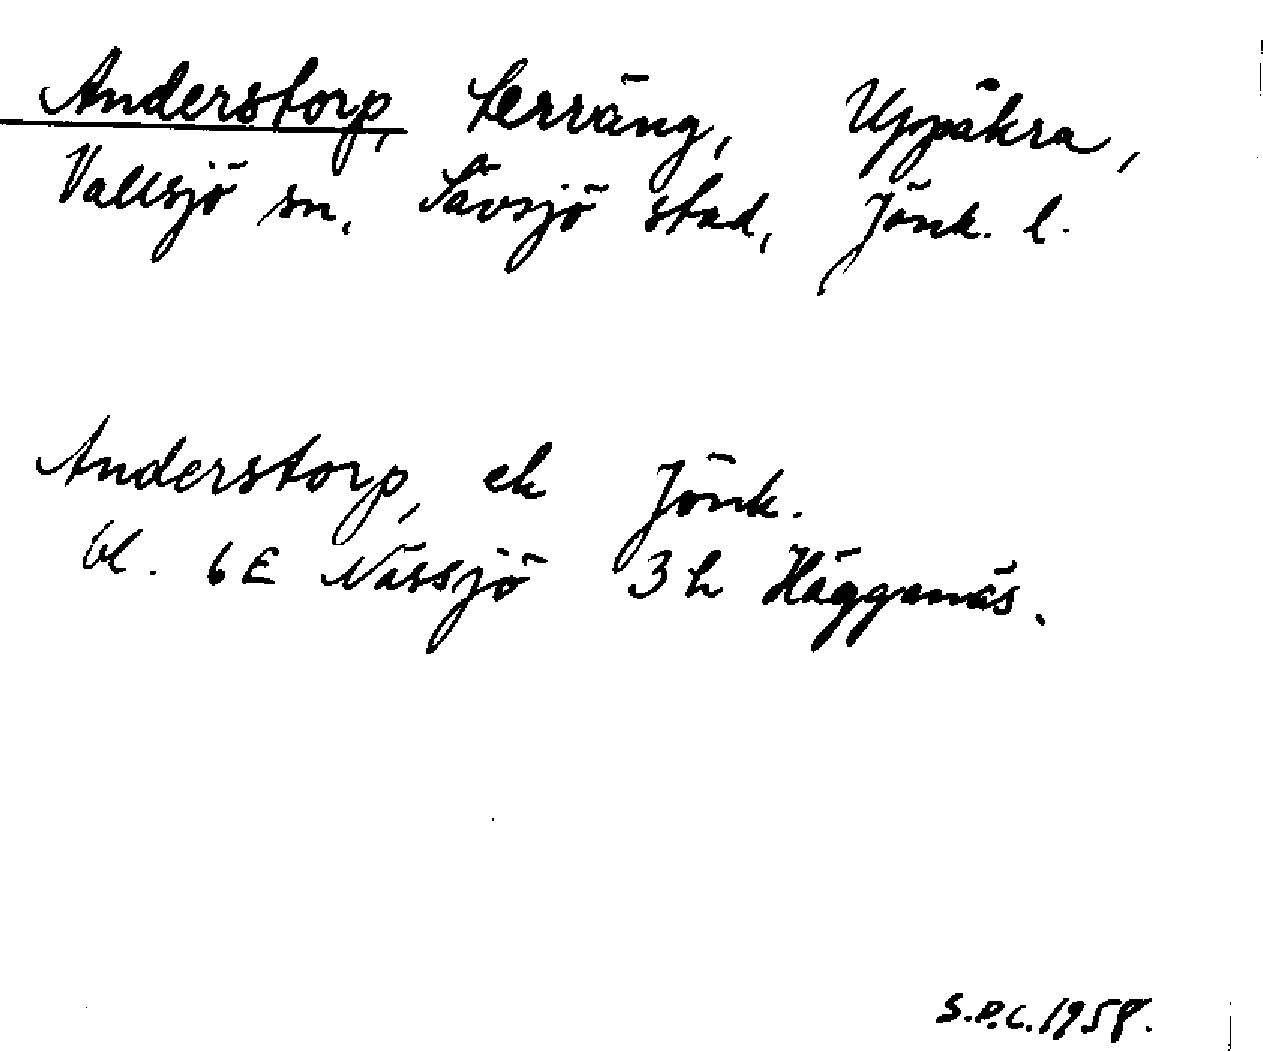 Anderstorp, Lerräng, Uppåkra,
Vallsjö sn, Sävsjö stad, Jönk. l.
Anderstorp, ek Jönk.
bl. 6E Nässjö 3h Hägganäs.
S.P.C. 1958.